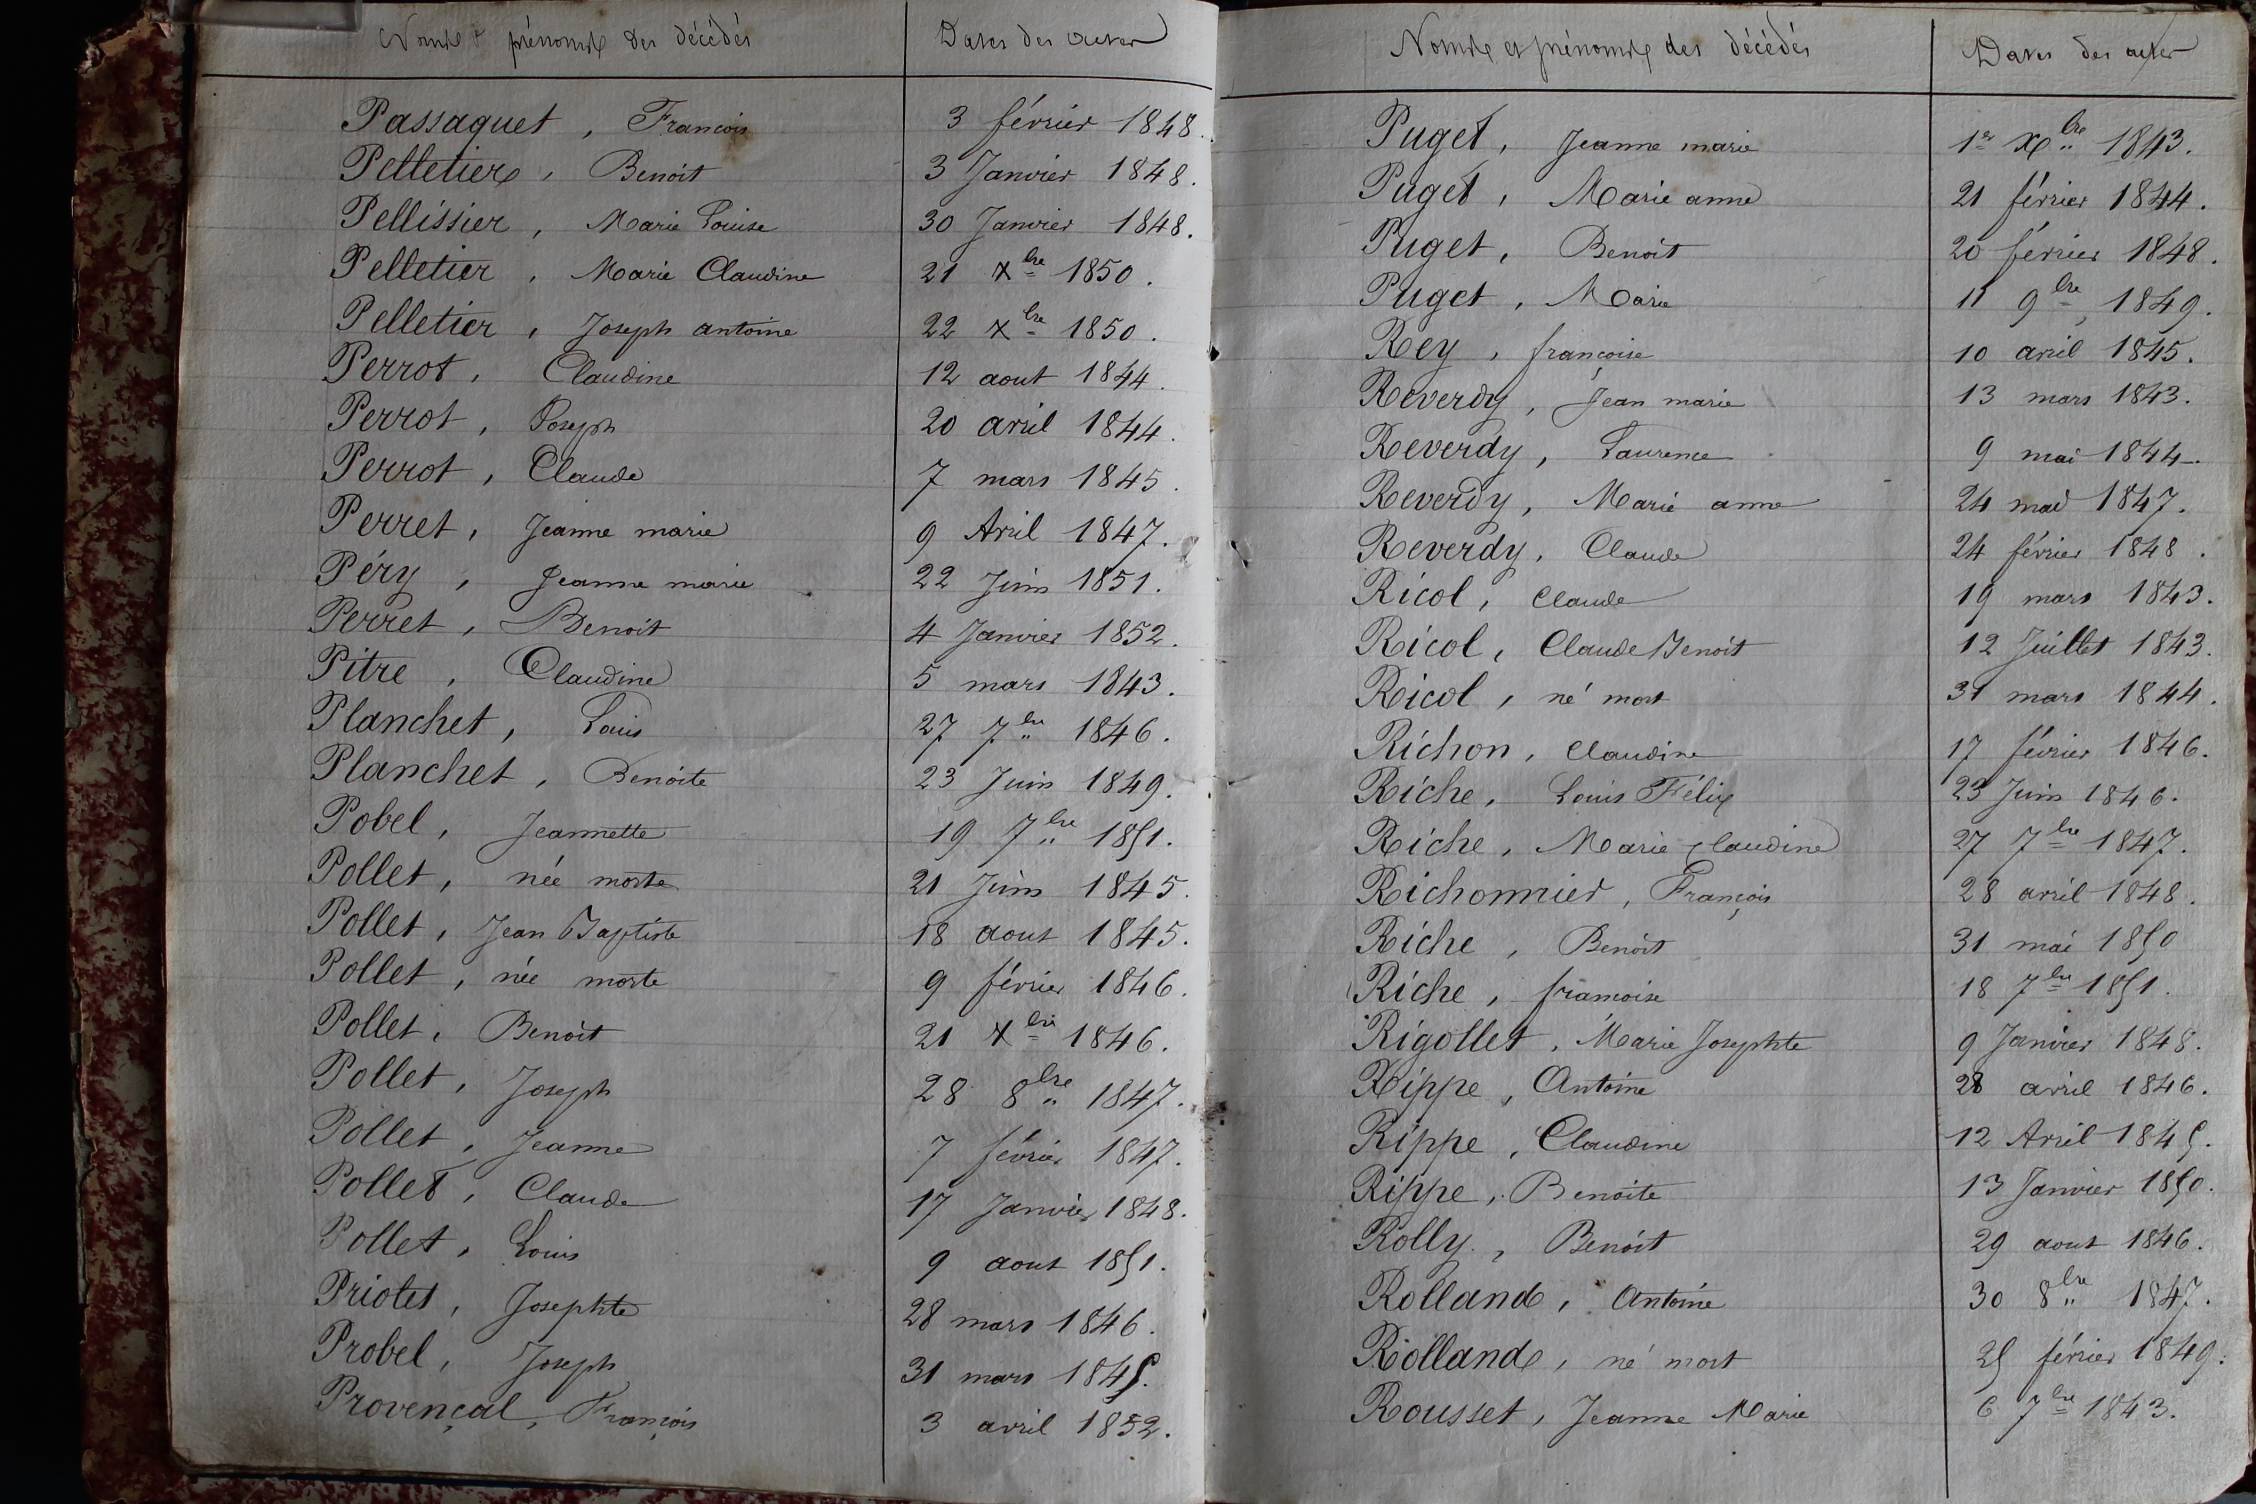 Noms & prénoms des décédés Dates des actes
Passaquet, François 3 février 1848.
Pelletier, Benoit 3 Janvier 1848.
Pellissier, Marie Louise 30 Janvier 1848.
Pelletier, Marie Claudine 21 Xbre 1850.
Pelletier, Joseph antoine 22 Xbre 1850.
Perrot, Claudine 12 aout 1844.
Perrot, Joseph 20 avril 1844.
Perrot, Claude 7 mars 1845.
Perret, Jeanne marie 9 Avril 1847.
Péry, Jeanne marie 22 Juin 1851.
Perret, Benoit 4 Janvier 1852.
Pitre, Claudine 5 mars 1843.
Planchet, Louis 27 7bre 1846.
Planchet, Benoite 23 Juin 1849.
Pobel, Jeannette 19 7bre 1851.
Pollet, née morte 21 Juin 1845.
Pollet, Jean Baptiste 18 aout 1845.
Pollet, née morte 9 février 1846.
Pollet, Benoit 21 Xbre 1846.
Pollet, Joseph 28 8bre 1847.
Pollet, Jeanne 7 février 1847.
Pollet, Claude 17 Janvier 1848.
Pollet, Louis 9 aout 1851.
Priolet, Josephte 28 mars 1846.
Probel, Joseph 31 mars 1845.
Provençal, François 3 avril 1852.
Noms et prénoms des décédés Dates des actes
Puget, Jeanne marie 1er Xbre 1843.
Puget, Marie anne 21 février 1844.
Puget, Benoit 20 février 1848.
Puget, Marie 11 9bre 1849.
Rey, françoise 10 avril 1845.
Reverdy, Jean marie 13 mars 1843.
Reverdy, Laurence 9 mai 1844.
Reverdy, Marie anne 24 mai 1847.
Reverdy, Claude 24 février 1848.
Ricol, Claude 19 mars 1843.
Ricol, Claude Benoit 12 Juillet 1843.
Ricol, né mort 31 mars 1844.
Richon, Claudine 17 février 1846.
Riche, Louis Félix 23 Juin 1846.
Riche, Marie Claudine 27 7bre 1847.
Richonnier, François 28 avril 1848.
Riche, Benoit 31 mai 1850
Riche, framoise 18 7bre 1851.
Rigollet, Marie Josephte 9 Janvier 1848.
Rippe, Antoine 28 avril 1846.
Rippe, Claudine 12 Avril 1845.
Rippe, Benoite 13 Janvier 1850.
Rolly, Benoit 29 aout 1846.
Rolland, Antoine 30 8bre 1847.
Rolland, né mort 25 février 1849.
Rousset, Jeanne Marie 6 7bre 1843.